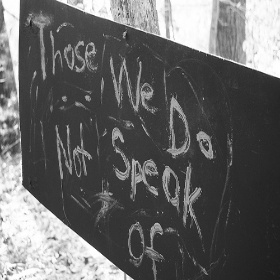 Those We Do
Not Speak
Of